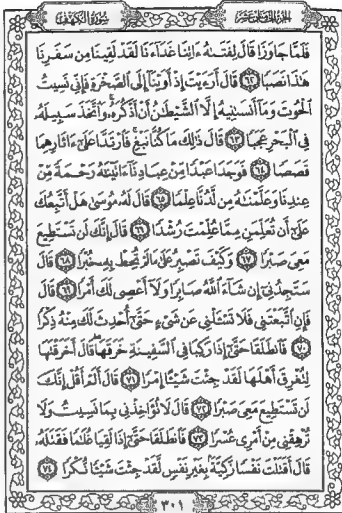 الجزء الخامس عشر
سورة الكهف
فَلَمَّا جَاوَزَا قَالَ لِفَتَىٰهُ ءَاتِنَا غَدَآءَنَا لَقَدْ لَقِينَا مِن سَفَرِنَا
هَٰذَا نَصَبًا ٦٢ قَالَ أَرَءَيْتَ إِذْ أَوَيْنَآ إِلَى ٱلصَّخْرَةِ فَإِنِّى نَسِيتُ
ٱلْحُوتَ وَمَآ أَنسَىٰنِيهُ إِلَّا ٱلشَّيْطَٰنُ أَنْ أَذْكُرَهُۥ وَٱتَّخَذَ سَبِيلَهُۥ
فِى ٱلْبَحْرِ عَجَبًا ٦٣ قَالَ ذَٰلِكَ مَا كُنَّا نَبْغِ فَٱرْتَدَّا عَلَىٰٓ ءَاثَارِهِمَا
قَصَصًا ٦٤ فَوَجَدَا عَبْدًا مِّنْ عِبَادِنَآ ءَاتَيْنَٰهُ رَحْمَةً مِّنْ
عِندِنَا وَعَلَّمْنَٰهُ مِن لَّدُنَّا عِلْمًا ٦٥ قَالَ لَهُۥ مُوسَىٰ هَلْ أَتَّبِعُكَ
عَلَىٰٓ أَن تُعَلِّمَنِ مِمَّا عُلِّمْتَ رُشْدًا ٦٦ قَالَ إِنَّكَ لَن تَسْتَطِيعَ
مَعِىَ صَبْرًا ٦٧ وَكَيْفَ تَصْبِرُ عَلَىٰ مَا لَمْ تُحِطْ بِهِۦ خُبْرًا ٦٨ قَالَ
سَتَجِدُنِىٓ إِن شَآءَ ٱللَّهُ صَابِرًا وَلَآ أَعْصِى لَكَ أَمْرًا ٦٩ قَالَ
فَإِنِ ٱتَّبَعْتَنِى فَلَا تَسْـَٔلْنِى عَن شَىْءٍ حَتَّىٰٓ أُحْدِثَ لَكَ مِنْهُ ذِكْرًا
٧٠ فَٱنطَلَقَا حَتَّىٰٓ إِذَا رَكِبَا فِى ٱلسَّفِينَةِ خَرَقَهَا قَالَ أَخَرَقْتَهَا
لِتُغْرِقَ أَهْلَهَا لَقَدْ جِئْتَ شَيْـًٔا إِمْرًا ٧١ قَالَ أَلَمْ أَقُلْ إِنَّكَ
لَن تَسْتَطِيعَ مَعِىَ صَبْرًا ٧٢ قَالَ لَا تُؤَاخِذْنِى بِمَا نَسِيتُ وَلَا
تُرْهِقْنِى مِنْ أَمْرِى عُسْرًا ٧٣ فَٱنطَلَقَا حَتَّىٰٓ إِذَا لَقِيَا غُلَٰمًا فَقَتَلَهُۥ
قَالَ أَقَتَلْتَ نَفْسًا زَكِيَّةًۢ بِغَيْرِ نَفْسٍ لَّقَدْ جِئْتَ شَيْـًٔا نُّكْرًا ٧٤
٣٠١